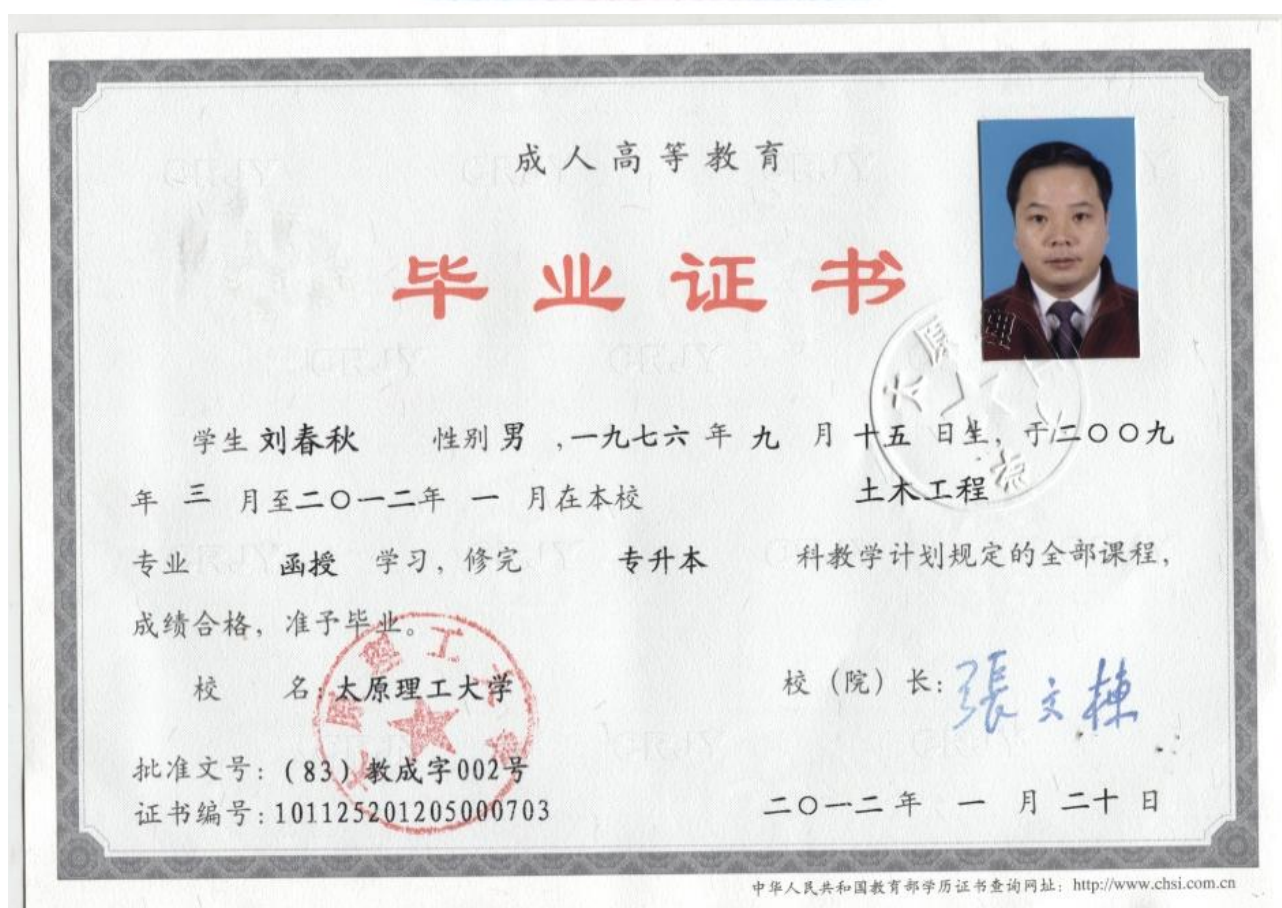 成人高等教育
毕业证书
学生 刘春秋 性别 男 ,一九七六 年 九 月 十五 日生, 于二〇〇九
年 三 月至二〇一二年 一 月在本校 土木工程
专业 函授 学习, 修完 专升本 科教学计划规定的全部课程,
成绩合格, 准予毕业。
校 名: 太原理工大学
校（院）长: 張文棟
批准文号: (83) 教成字002号
证书编号: 101125201205000703
二〇一二 年 一 月 二十 日
中华人民共和国教育部学历证书查询网址: http://www.chsi.com.cn
太原理工大学